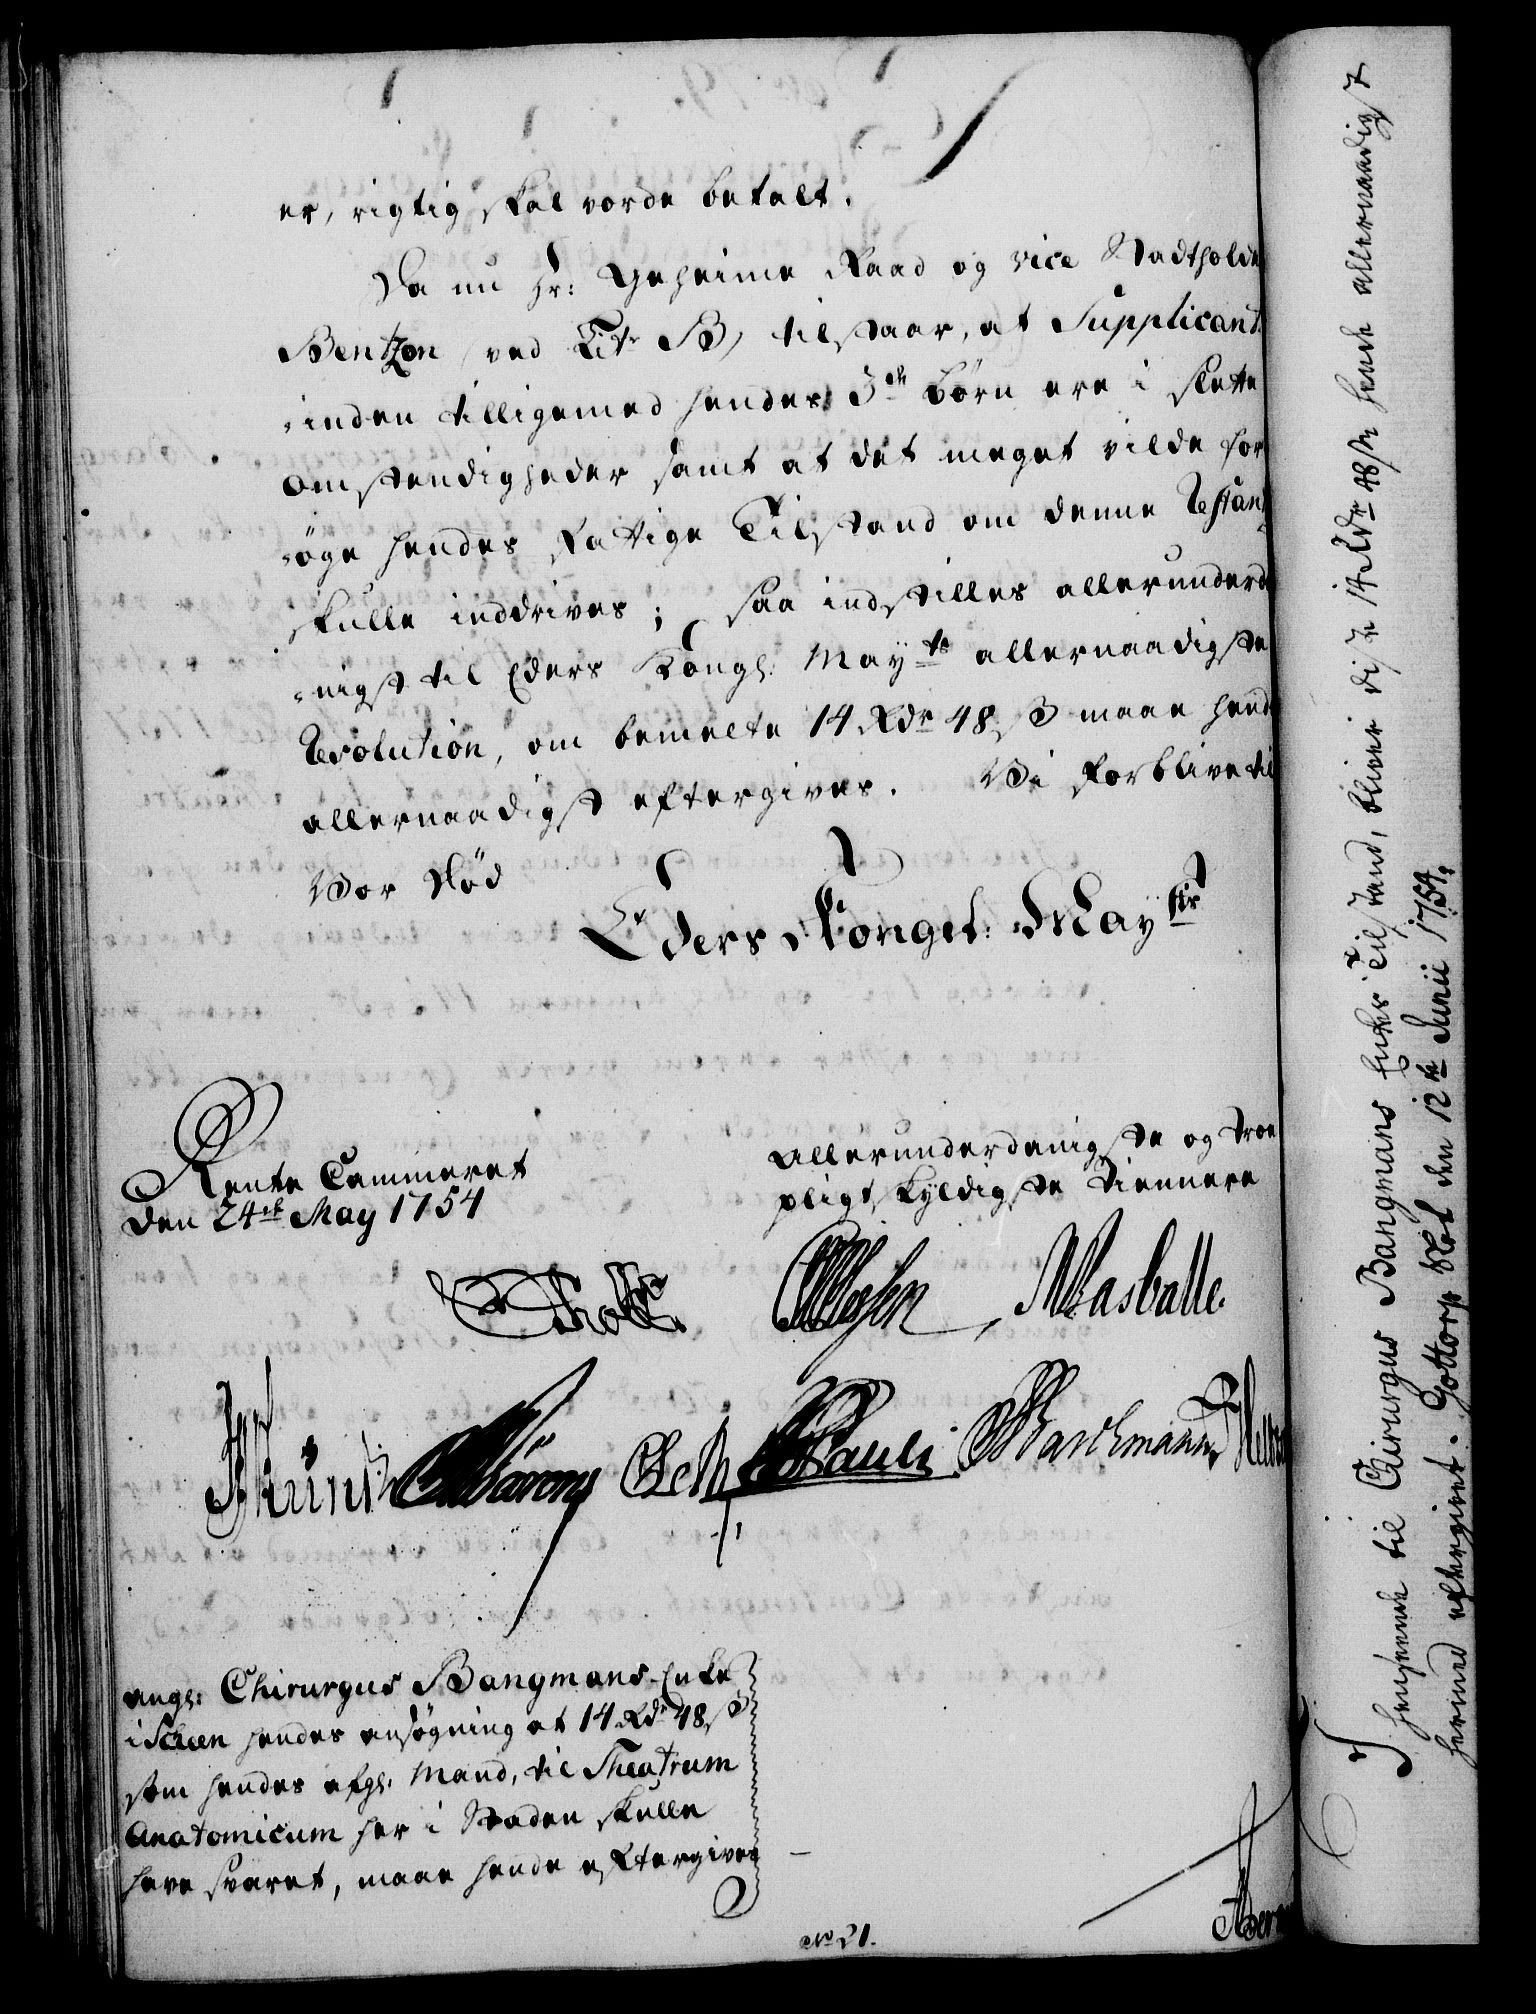 er, rigtig skal vorde betalt.
Da nu Hr: Geheime Raad og vice Stadtholde
Bentzon ved Litr B, tilstaar, at Supplicant-
-inden tilligemed hendes 3de børn ere i slette
omstendigheder samt at det meget vilde for-
-øge hendes Fattige Tilstand om denne Restan-
skulle inddrives; saa indstilles allerunderd-
-nigst til Eders Kongl: Mayts allernaadigste
Resolution, om bemelte 14 Rdr 48 ß maae hende
allernaadigst eftergives. Vi forblive til
Vor Død
Eders Kongel: Mayts
Rente Cammeret
den 24de May 1754
allerunderdanigste og troe
pligtskyldigste Tiennere
Holst
Masballe
Pauli
angl: Chirurgus Bangmans Enke
i Scheen hendes ansøgning at 14 Rdr 48 ß
som hendes afgl: Mand, til Theatrum
Anatomicum her i Staden skulle
have svaret, maae hende eftergives
No 21.
I henseende til Chirurgus Bangmans Enkes Tilstand, bliver disse 14 Rdr 48 ß hende allernaadigst
hermed eftergivet. Gottorp Slot den 12te Junii 1754.